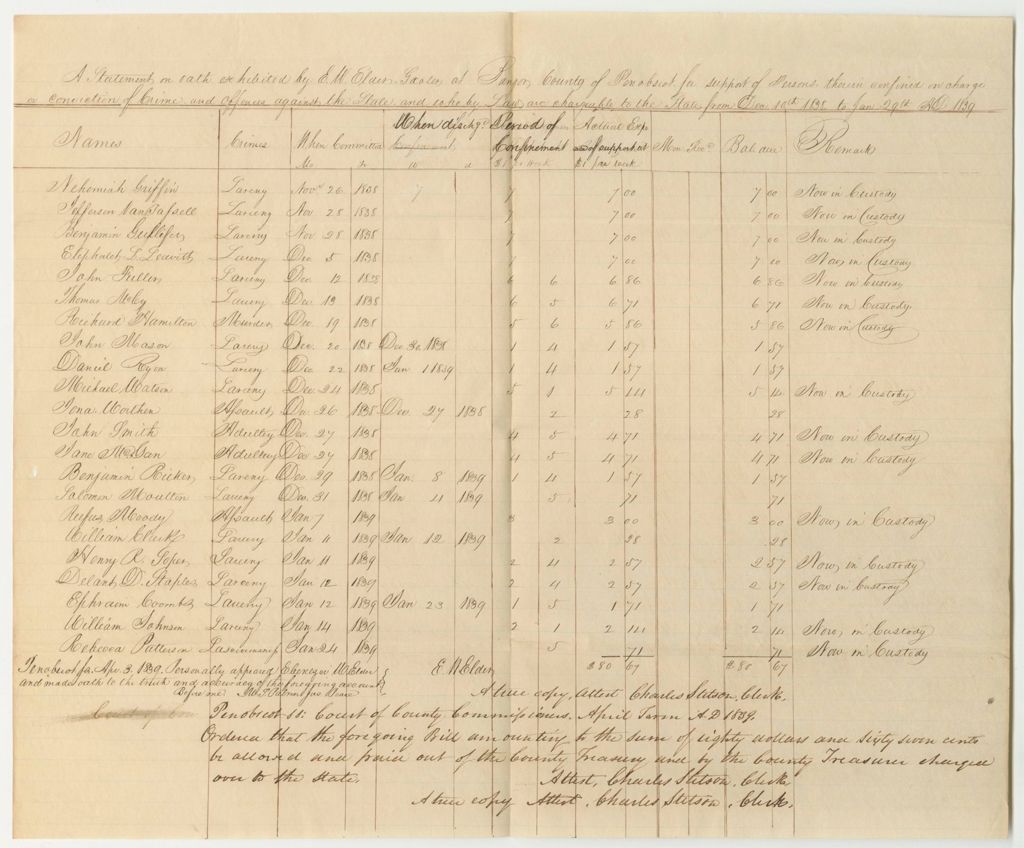 A Statement on oath exhibited by E. W. Elder Gaoler at Bangor County of Penobscot for support of Persons therein confined on charge
or conviction of Crime and Offences against the State and who by Law are chargeable to the State from Dec 10th 1838 to Jan 29th AD 1839
Names Crimes When Committed When dischgd Period of Confinement Actual Exp of support at $1 per week Mon Recd Balance Remark
Nehemiah Griffin Larceny Nov 26 1838 7 7 00 7 00 Now in Custody
Jefferson VanTassell Larceny Nov 28 1838 7 7 00 7 00 Now in Custody
Benjamin Gullifer Larceny Nov 28 1838 7 7 00 7 00 Now in Custody
Eliphalet L. Leavitt Larceny Dec 5 1838 7 7 00 7 00 Now in Custody
John Fuller Larceny Dec 12 1838 6 6 6 86 6 86 Now in Custody
Thomas McCoy Larceny Dec 13 1838 6 5 6 71 6 71 Now in Custody
Richard Hamilton Murder Dec 19 1838 5 6 5 86 5 86 Now in Custody
John Mason Larceny Dec 20 1838 Dec 30 1838 1 4 1 57 1 57
Daniel Ryon Larceny Dec 22 1838 Jan 1 1839 1 4 1 57 1 57
Michael Watson Larceny Dec 24 1838 5 1 5 14 5 14 Now in Custody
Iona Worthen Assault Dec 26 1838 Dec 27 1838 2 28 28
John Smith Adultery Dec 27 1838 4 5 4 71 4 71 Now in Custody
Jane Adultery Dec 27 1838 4 5 4 71 4 71 Now in Custody
Benjamin Ricker Larceny Dec 29 1838 Jan 8 1839 1 4 1 57 1 57
Solomon Moulton Larceny Dec 31 1838 Jan 4 1839 5 71 71
Rufus Moody Assault Jan 7 1839 3 3 00 3 00 Now in Custody
William Clark Larceny Jan 11 1839 Jan 12 1839 2 28 28
Henry R. Soper Larceny Jan 11 1839 2 4 2 57 2 57 Now in Custody
Delant D. Staples Larceny Jan 12 1839 2 4 2 57 2 57 Now in Custody
Ephraim Coombs Larceny Jan 12 1839 Jan 23 1839 1 5 1 71 1 71
William Johnson Larceny Jan 14 1839 2 1 2 14 2 14 Now in Custody
Rebecca Patterson Jan 24 1839 5 71 71 Now in Custody
Penobscot ss. Apr 3. 1839. Personally appeared Ebenezer W Elder E W Elder $80 67 $80 67
and made oath to the truth and accuracy of the foregoing account
Before me
A true copy, attest Charles Stetson, Clerk.
Penobscot ss. Court of County Commissioners, April Term A.D 1839.
Ordered that the foregoing Bill amounting to the sum of eighty dollars and sixty seven cents
be allowed and paid out of the County Treasury and by the County Treasurer charged
over to the State.
Attest, Charles Stetson, Clerk
A true copy Attest, Charles Stetson, Clerk.